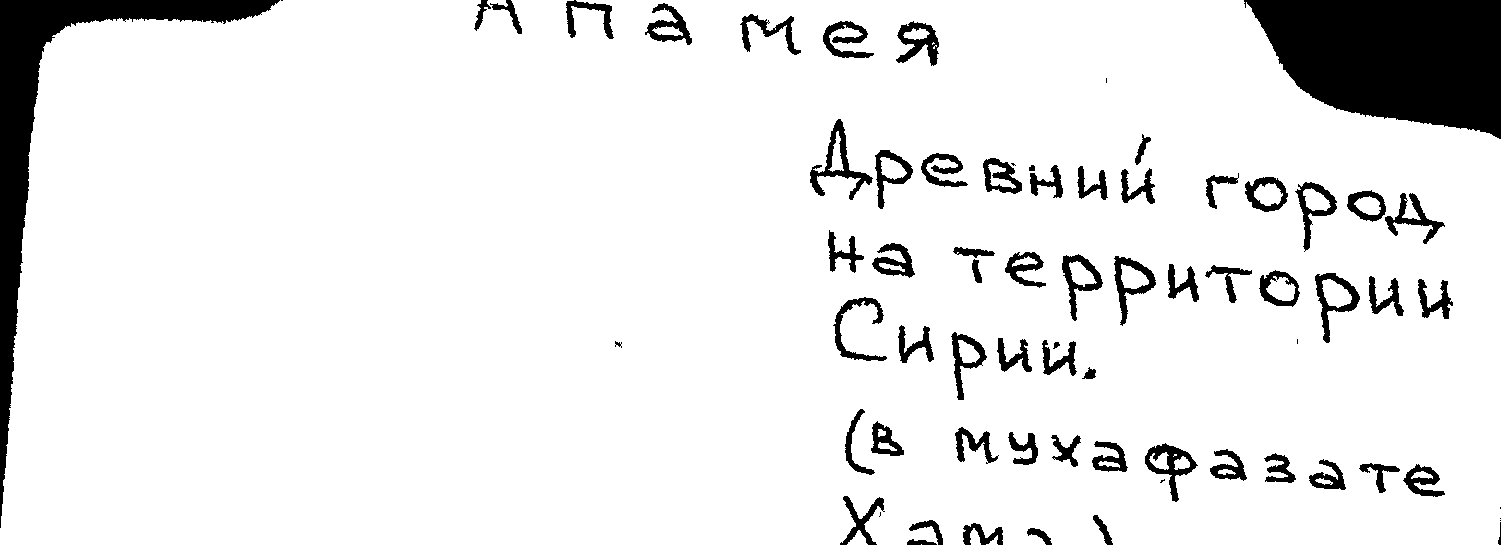 Апамея
Древний город
на территории
Сирии.
(в мухафазате
Хама)